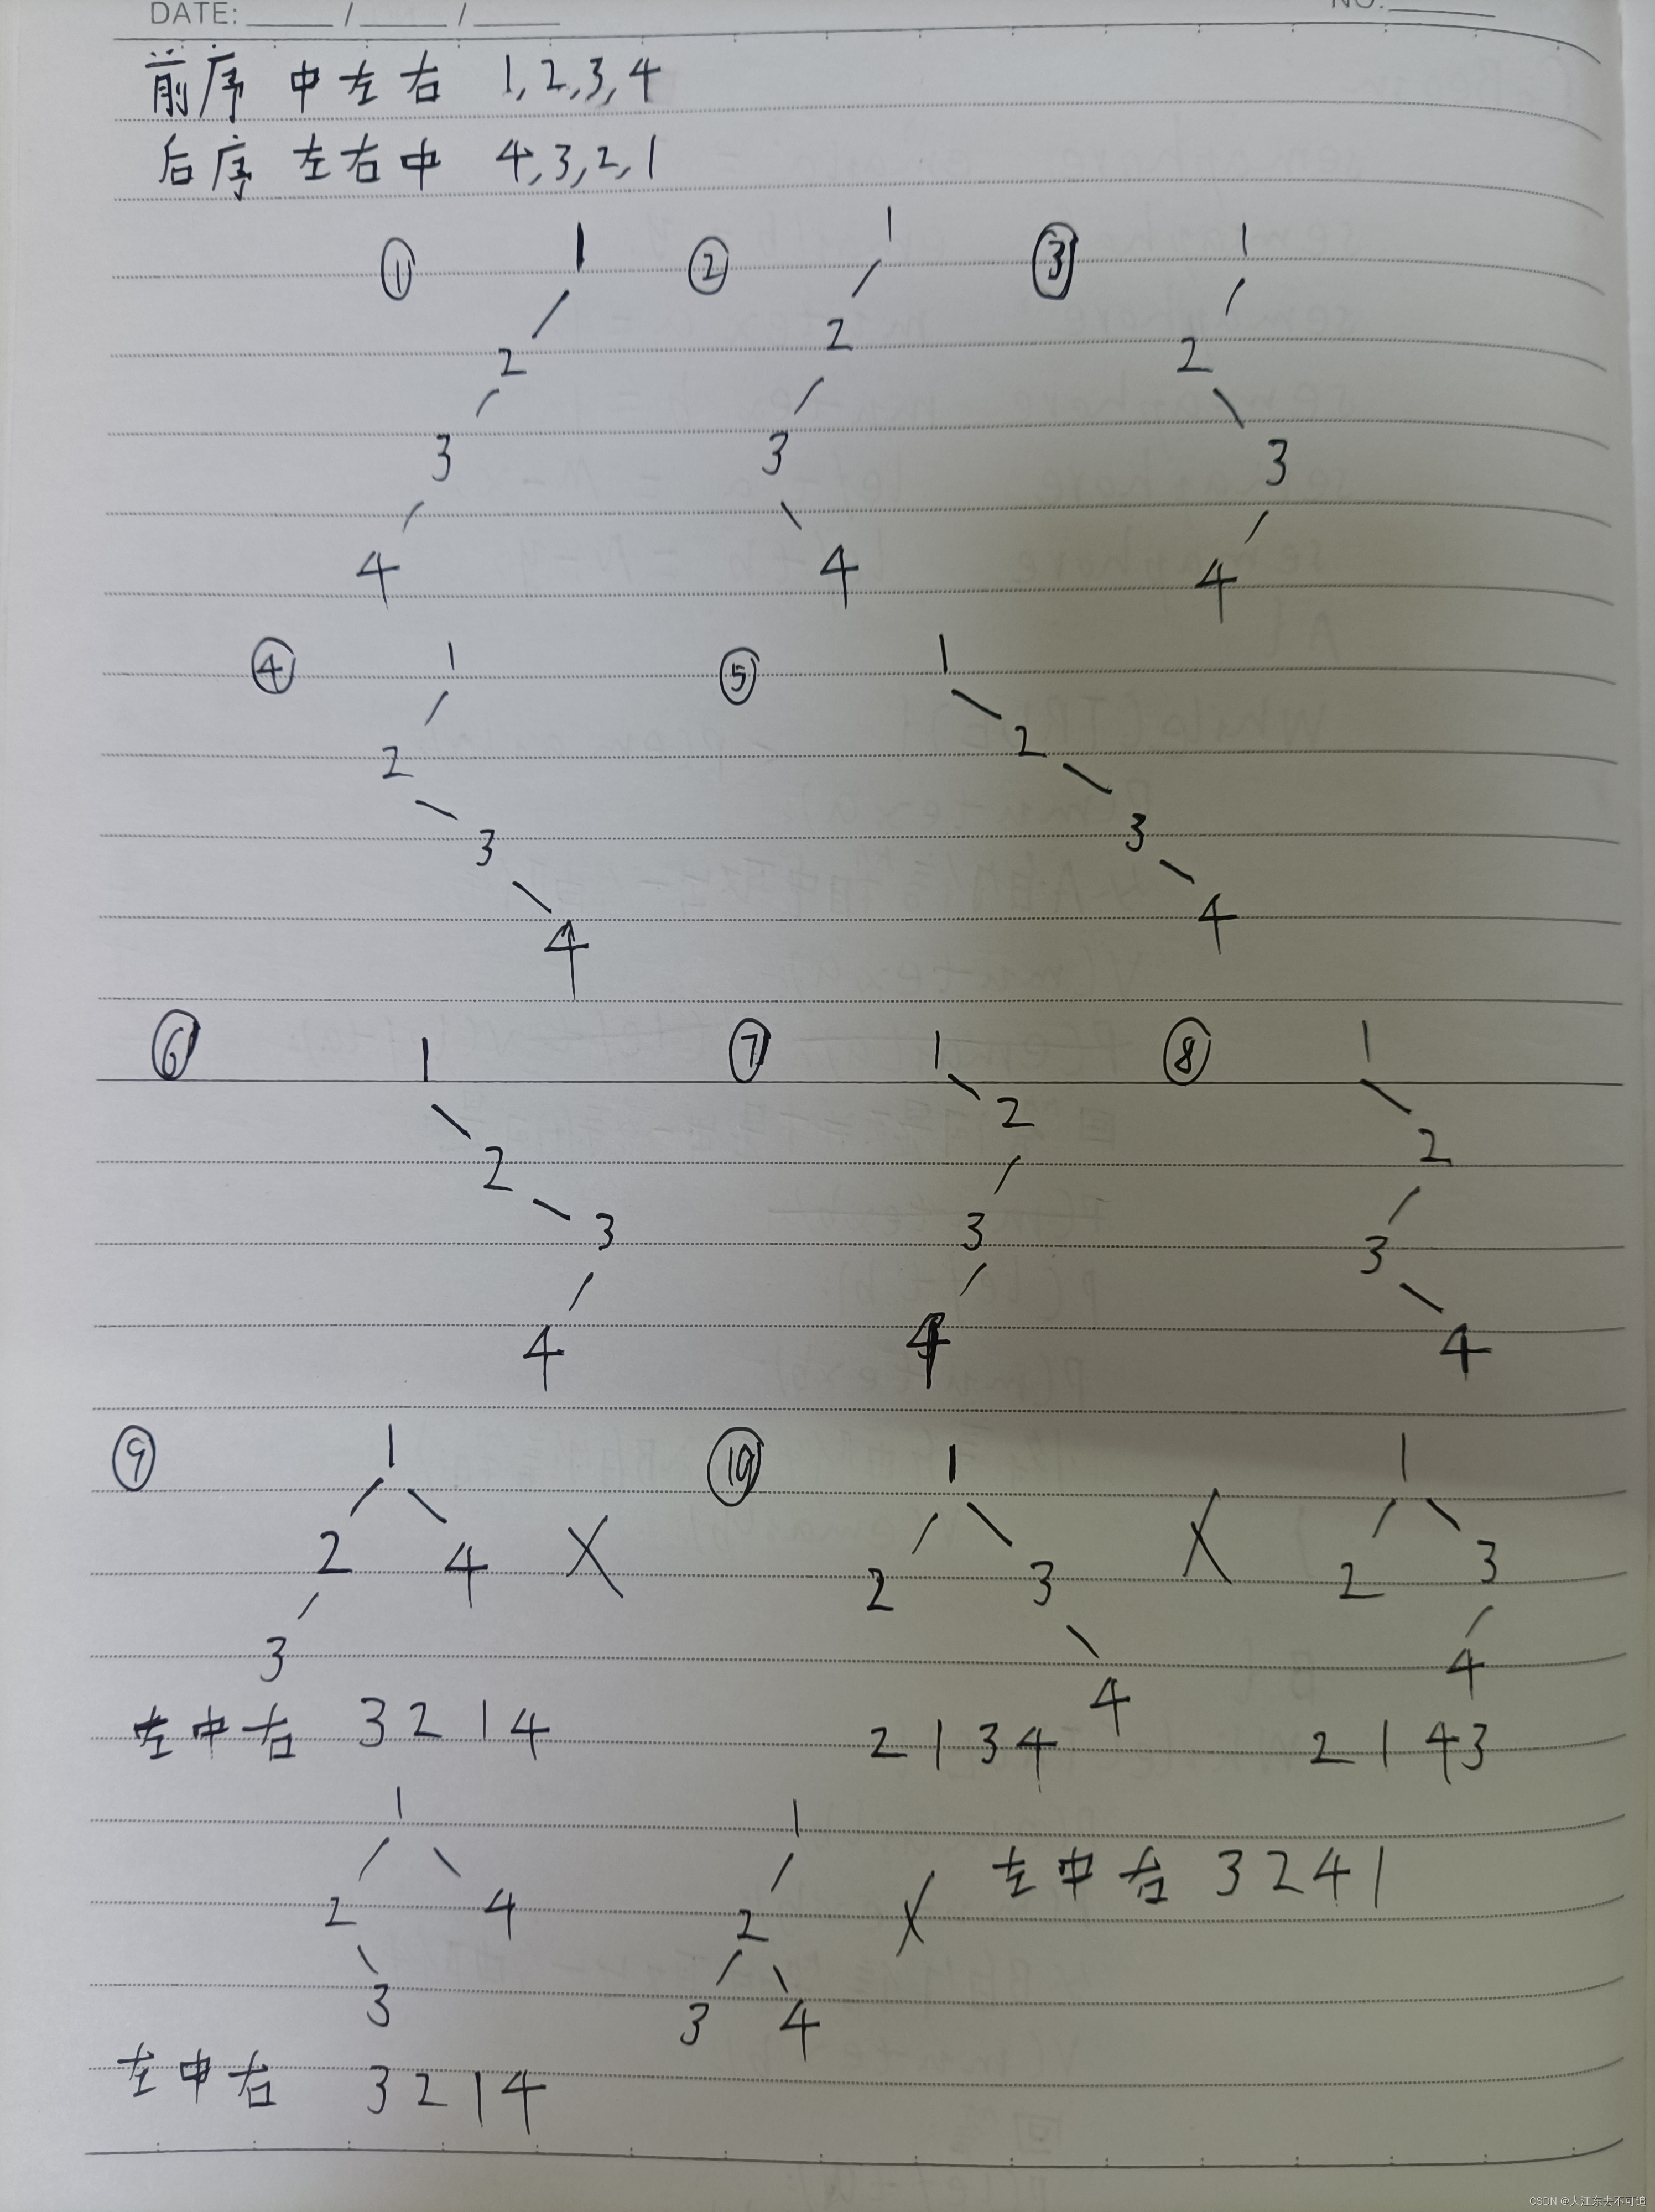 DATE: ____ / ____ / ____ NO.
前序 中左右 1,2,3,4
后序 左右中 4,3,2,1
① 1 ② 1 ③ 1
2 2 2
3 3 3
4 4 4
④ 1 ⑤ 1
2 2
3 3
4 4
⑥ 1 ⑦ 1 ⑧ 1
2 2 2
3 3 3
4 4 4
⑨ 1 ⑩ 1 1
2 4 X 2 3 X 2 3
3 4 4
左中右 3214 2134 2143
1 1
2 4 2 X 左中右 3241
3 3 4
左中右 3214
CSDN @大江东去不可追